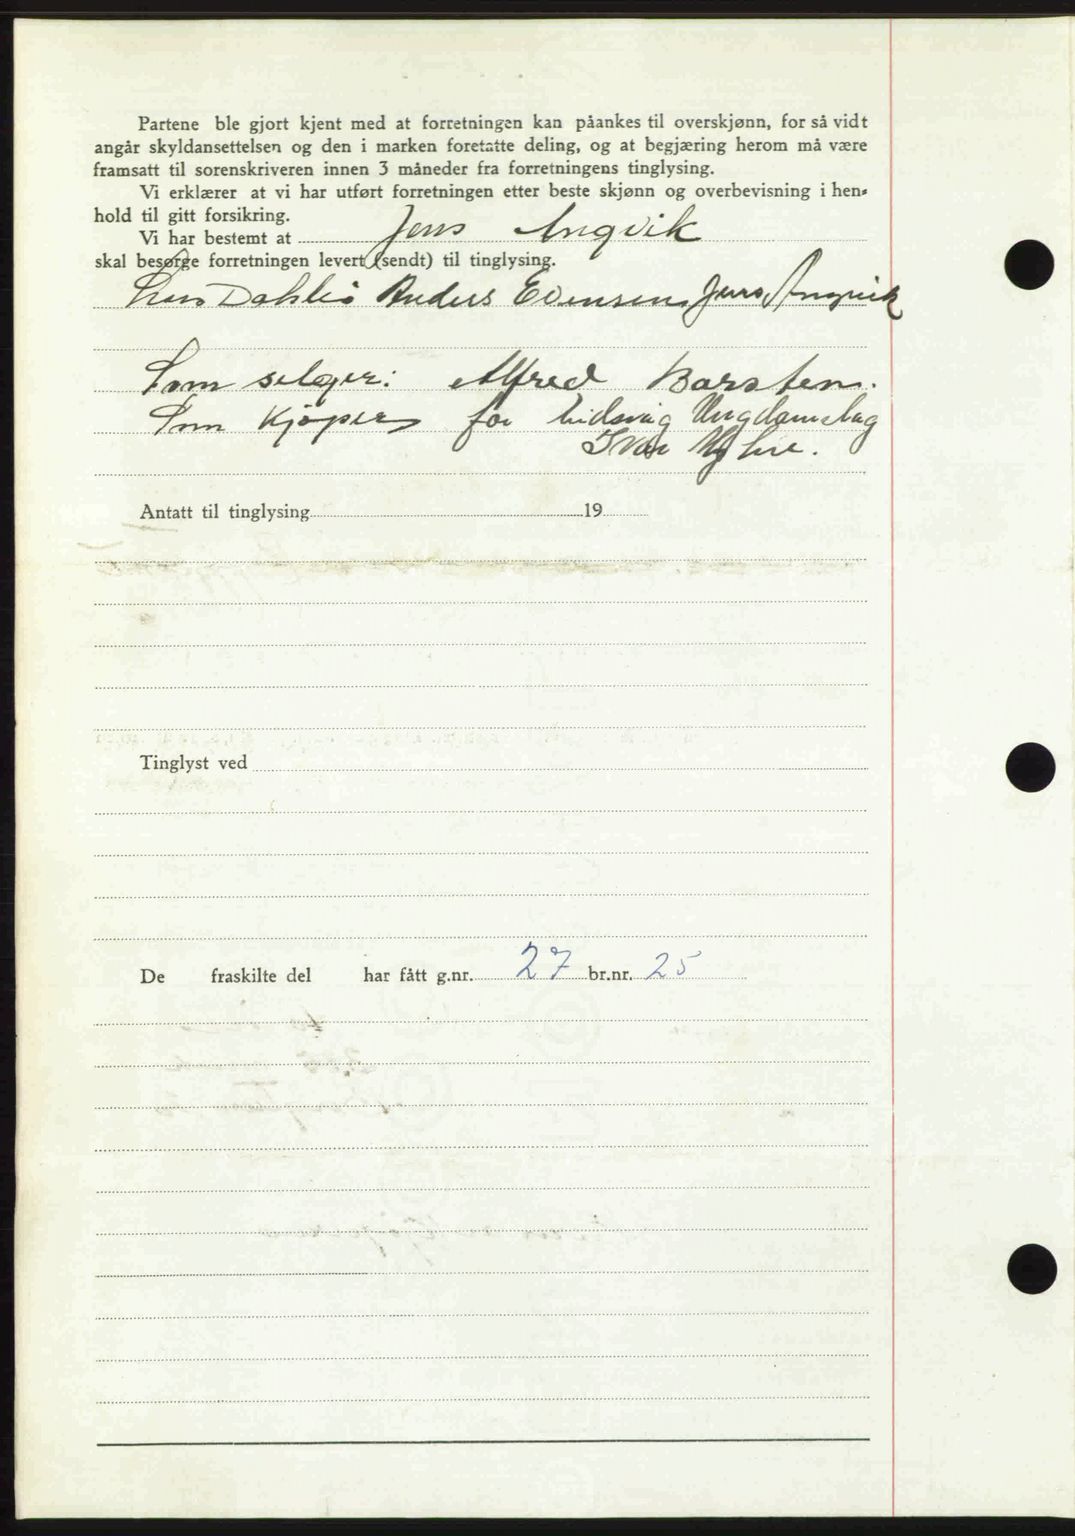 Partene ble gjort kjent med at forretningen kan påankes til overskjønn, for så vidt
angår skyldansettelsen og den i marken foretatte deling, og at begjæring herom må være
framsatt til sorenskriveren innen 3 måneder fra forretningens tinglysing.
Vi erklærer at vi har utført forretningen etter beste skjønn og overbevisning i hen-
hold til gitt forsikring.
Vi har bestemt at Jens Angvik
skal besørge forretningen levert (sendt) til tinglysing.
Lars Dahlø Anders Evensen Jens Angvik
Som selger: Alfred Barsten.
Som Kjøper for Lidsvåg Ungdomslag
Ivar Myhre.
Antatt til tinglysing 19
Tinglyst ved
De fraskilte del har fått g.nr. 27 br.nr. 25